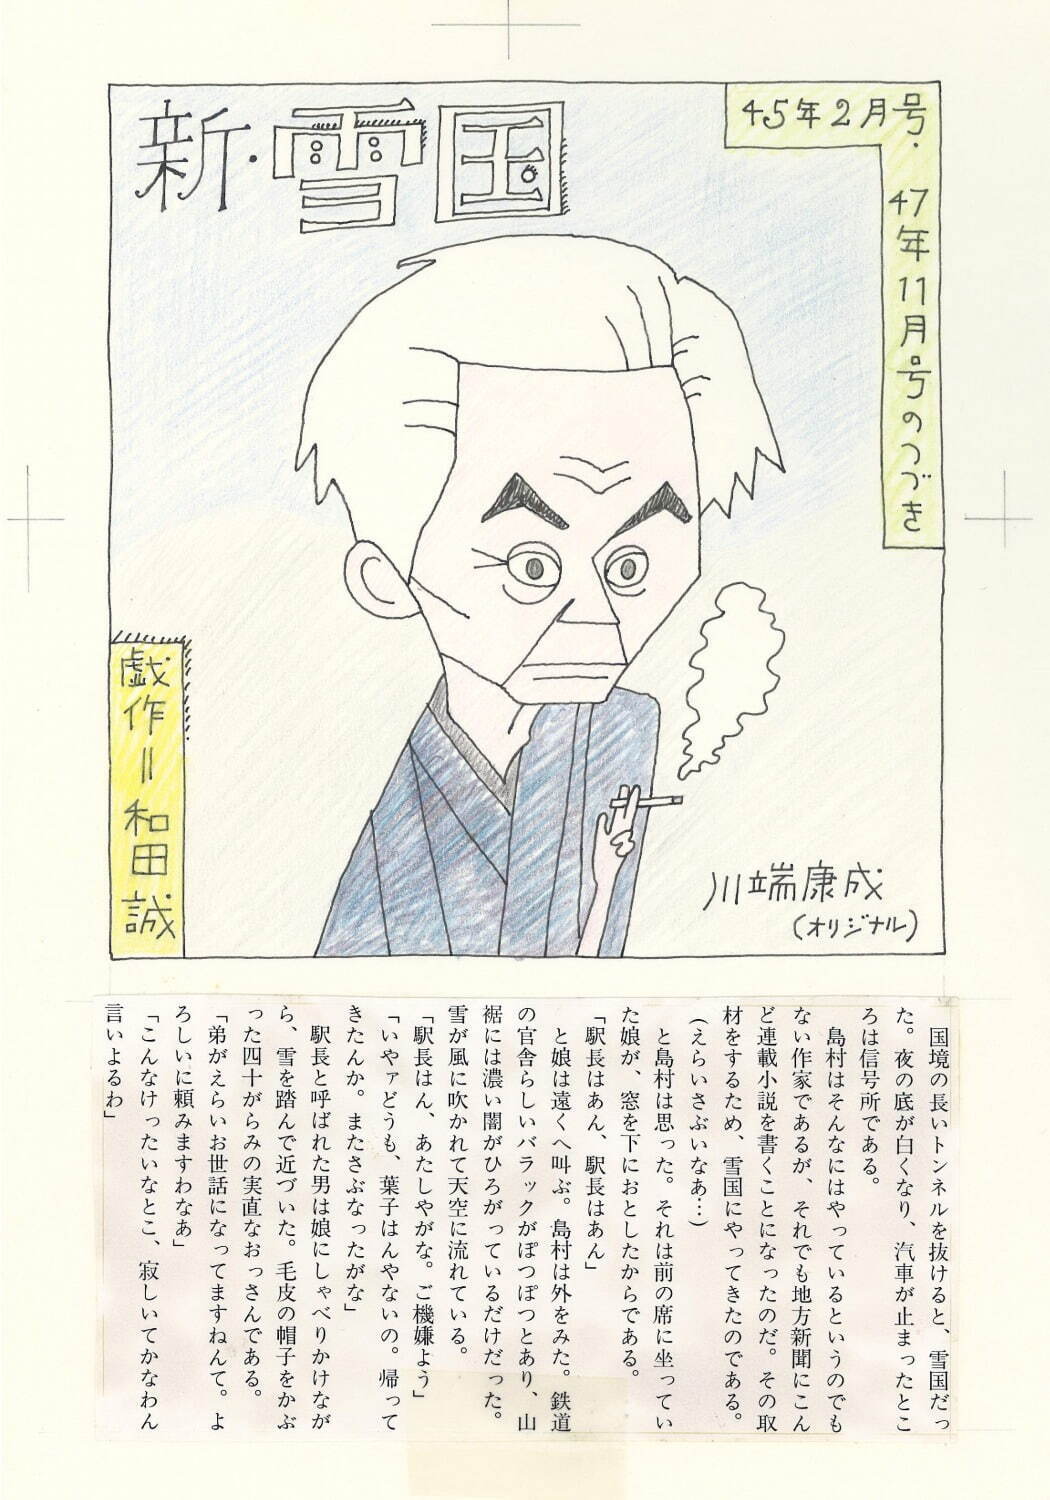 新・雪国
45年2月号・
47年11月号のつづき
戯作=和田誠
川端康成
(オリジナル)
国境の長いトンネルを抜けると、雪国だっ
た。夜の底が白くなり、汽車が止まったとこ
ろは信号所である。
島村はそんなにはやっているというのでも
ない作家であるが、それでも地方新聞にこん
ど連載小説を書くことになったのだ。その取
材をするため、雪国にやってきたのである。
(えらいさぶいなあ…)
と島村は思った。それは前の席に坐ってい
た娘が、窓を下におとしたからである。
「駅長はあん、駅長はあん」
と娘は遠くへ叫ぶ。島村は外をみた。鉄道
の官舎らしいバラックがぽつぽつとあり、山
裾には濃い闇がひろがっているだけだった。
雪が風に吹かれて天空に流れている。
「駅長はん、あたしやがな。ご機嫌よう」
「いやァどうも、葉子はんやないの。帰って
きたんか。またさぶなったがな」
駅長と呼ばれた男は娘にしゃべりかけなが
ら、雪を踏んで近づいた。毛皮の帽子をかぶ
った四十がらみの実直なおっさんである。
「弟がえらいお世話になってますねんて。よ
ろしいに頼みますわなあ」
「こんなけったいなとこ、寂しいてかなわん
言いよるわ」